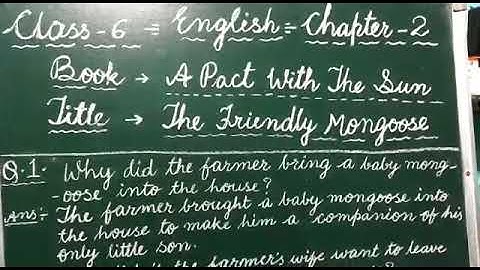 Class-6 = English = Chapter-2
Book → A Pact With The Sun
Title → The Friendly Mongoose
Q.1. Why did the farmer bring a baby mong-
-oose into the house?
Ans:- The farmer brought a baby mongoose into
the house to make him a companion of his
only little son.
the farmer's wife want to leave